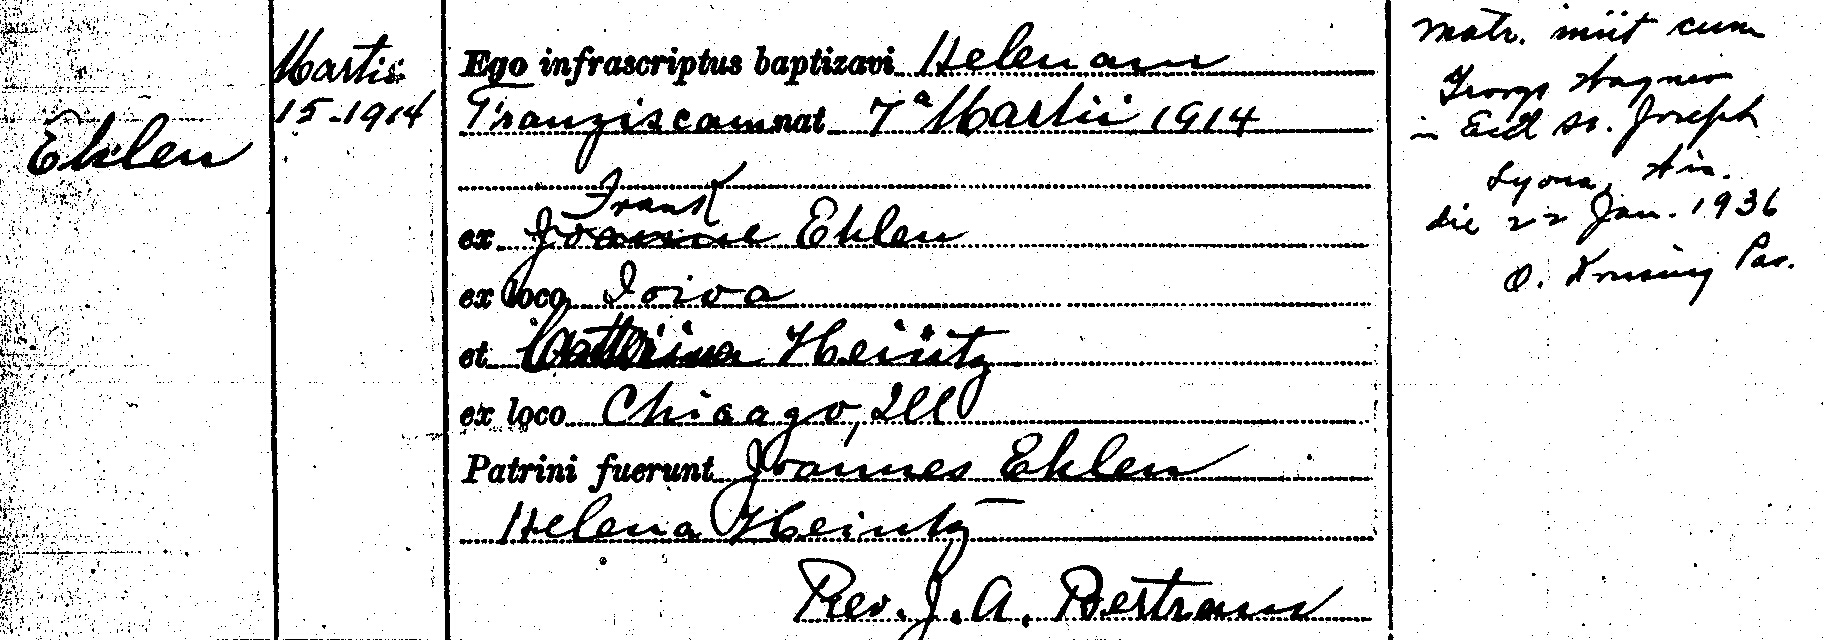 Ehlen
Martis
15-1914
Ego infrascriptus baptizavi Helenam
Franziscam nat 7ª Martii 1914
Frank
ex Joanne Ehlen
ex loco Iowa
et Heintz
ex loco Chicago, Ill
Patrini fuerunt Joannes Ehlen
Helena Heintz
Rev. J. A. Bertram
Matr. iniit cum
George Wagner
in Eccl St. Joseph
Lyons, Wis.
die 22 Jan. 1936
O. Pas.